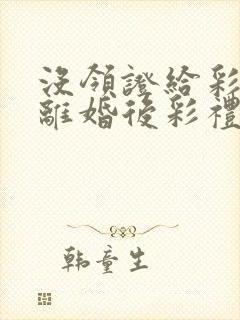 沒領證給彩
離婚後彩禮
韩童生